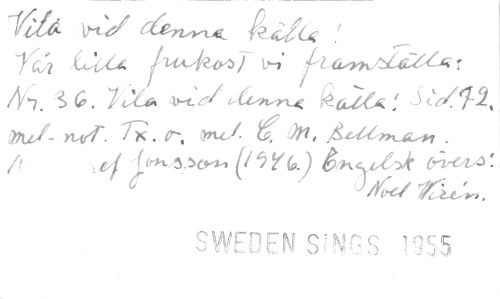 Vila vid denna källa!
Vår lilla frukost vi framställa:
Nr. 36. Vila vid denna källa! Sid. 72.
mel-not. Tx. o. mel. C. M. Bellman.
Jonsson (1946.) Engelsk övers:
Noel Wirén.
SWEDEN SINGS 1955